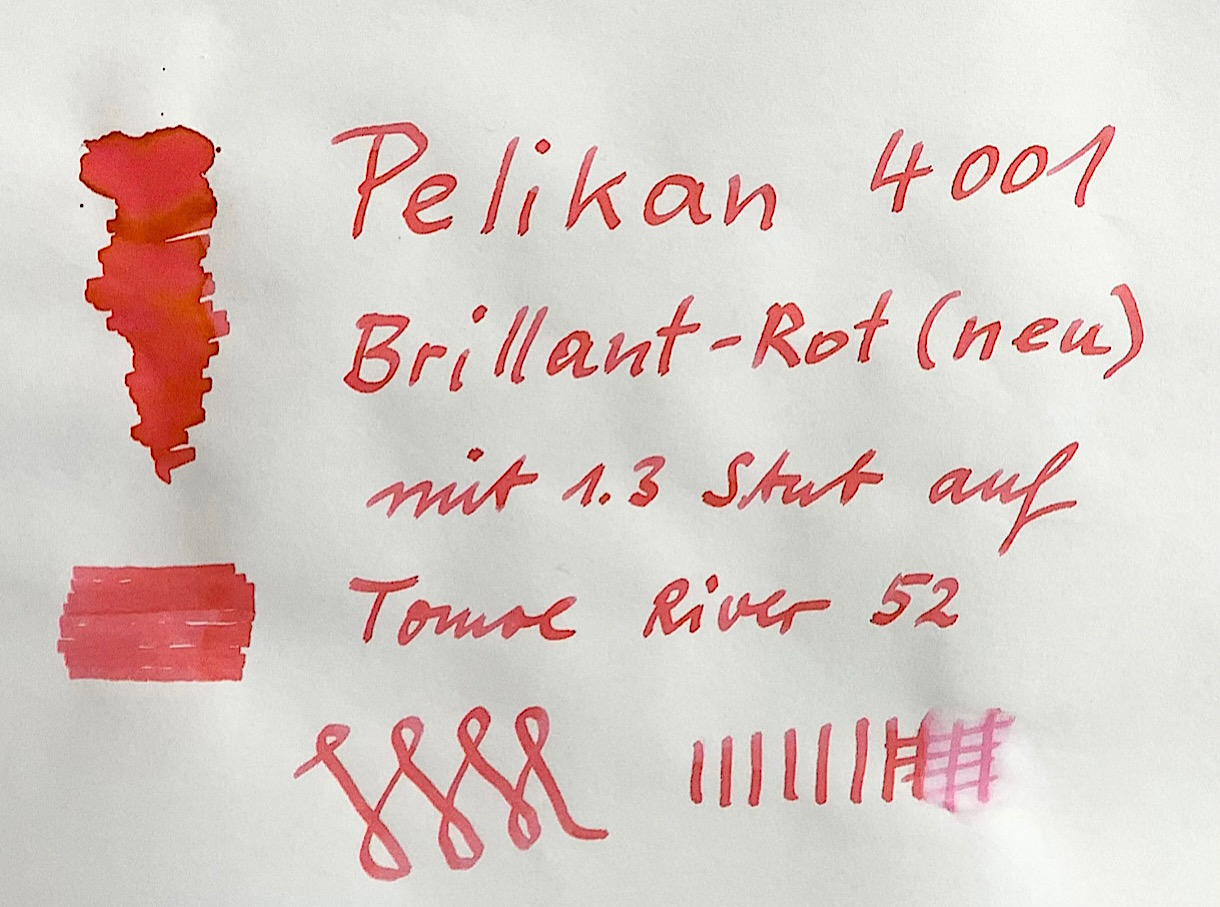 Pelikan 4001
Brillant-Rot (neu)
mit 1.3 Stub auf
Tomoe River 52